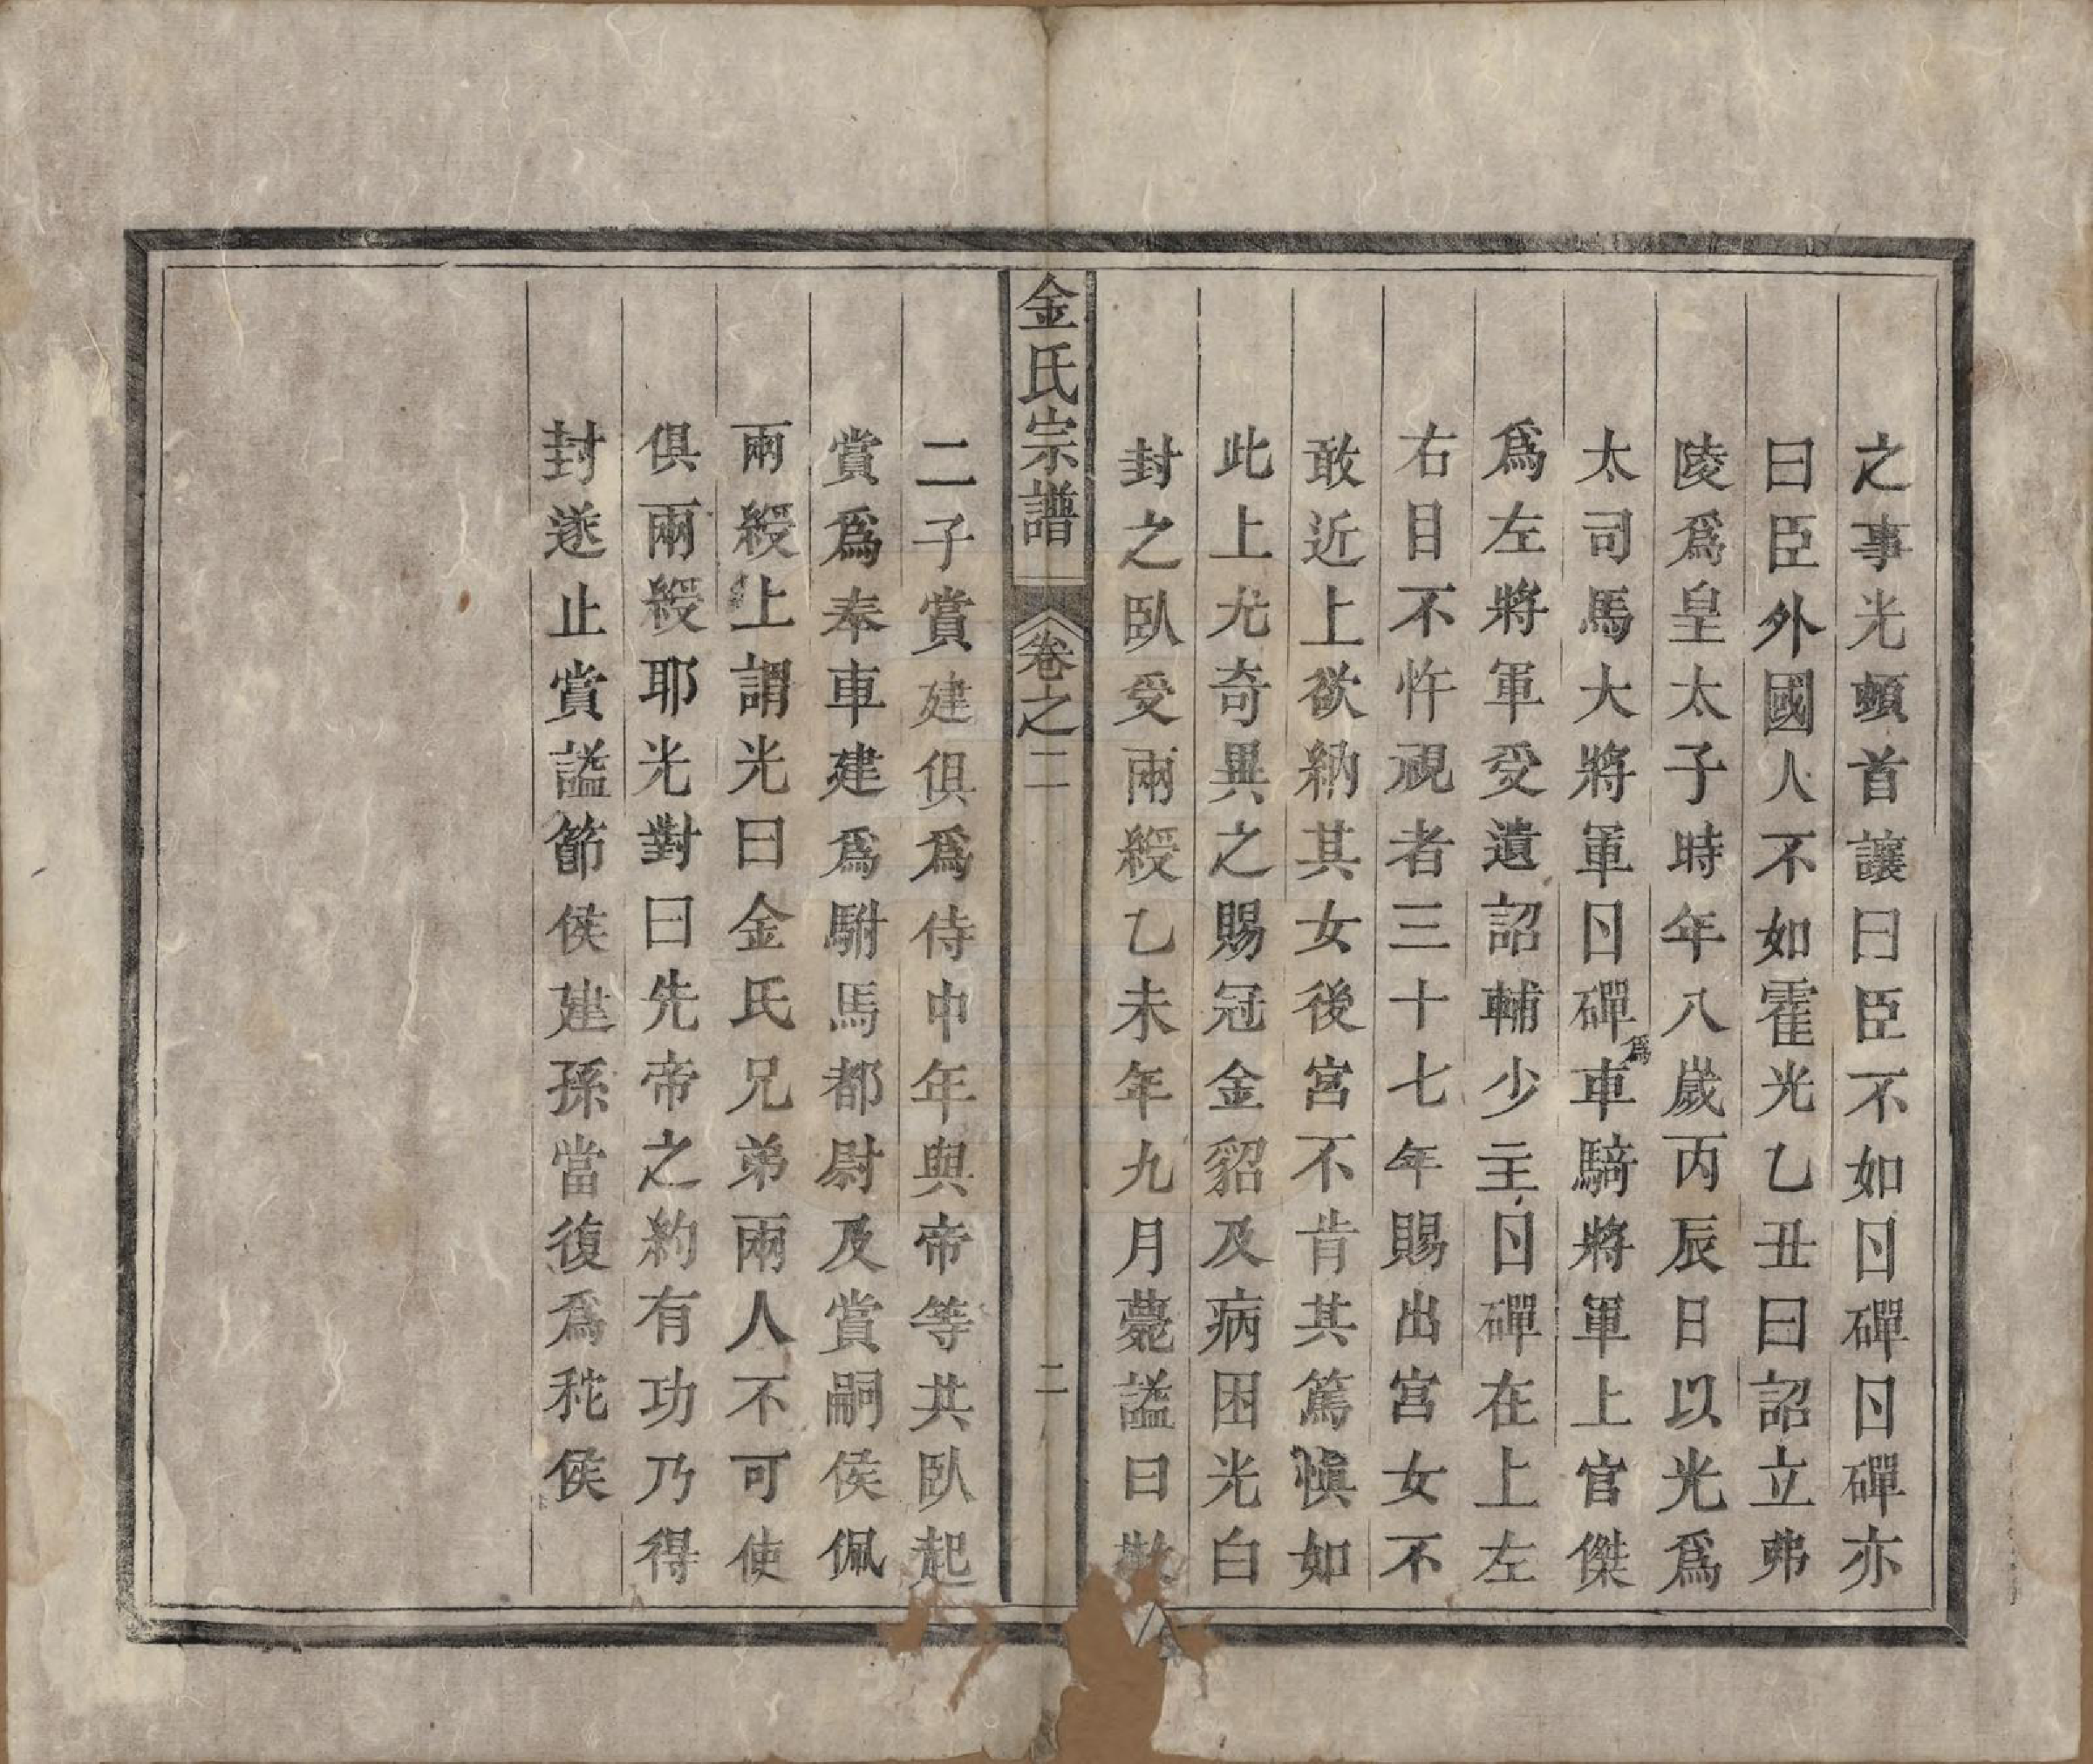 之事光頓首讓曰臣不如日磾日磾亦
曰臣外國人不如霍光乙丑曰詔立弗
陵爲皇太子時年八歲丙辰日以光爲
太司馬大將軍日磾爲車騎將軍上官傑
爲左將軍受遺詔輔少主日磾在上左
右目不忤視者三十七年賜出宮女不
敢近上欲納其女後宮不肯其篤慎如
此上尤奇異之賜冠金貂及病困光白
封之臥受兩綬乙未年九月薨謚曰敬
金氏宗譜
卷之二
二
二子賞建俱爲侍中年與帝等共臥起
賞爲奉車建爲駙馬都尉及賞嗣侯佩
兩綬上謂光曰金氏兄弟兩人不可使
俱兩綬耶光對曰先帝之約有功乃得
封遂止賞謚節侯建孫當復爲秺侯